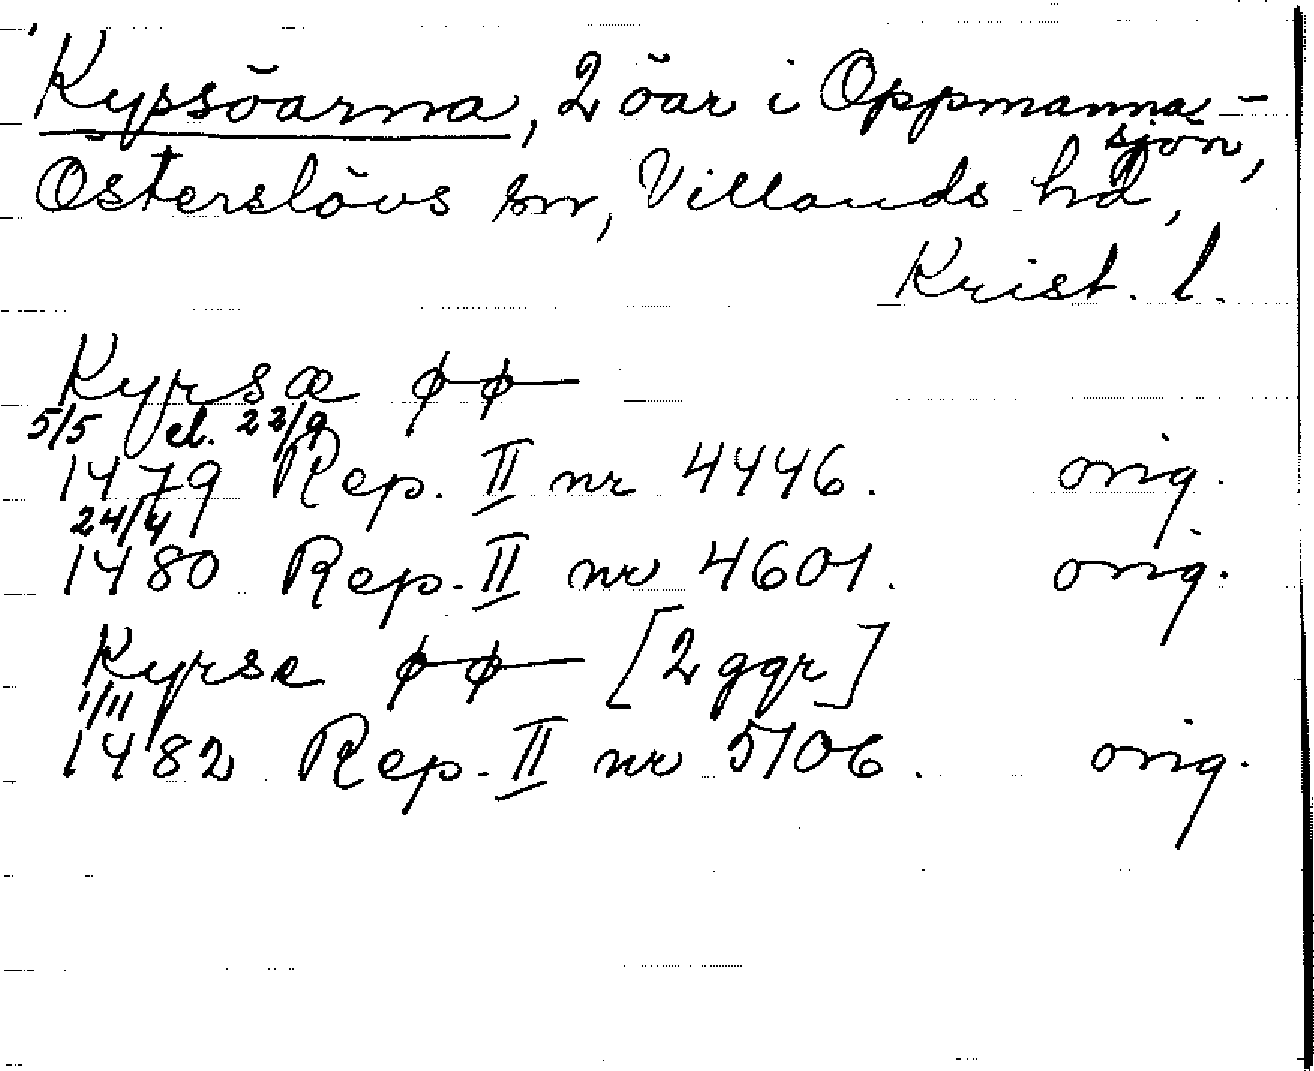 Kypsöarna, 2 öar i Oppmanna-
sjön,
Österslövs sn, Villands hd,
Krist. l.
Kyrsæ ϕϕ—
5/5 el. 22/9
1479 Rep. II nr 4446. orig.
24/4
1480 Rep. II nr 4601. orig.
Kyrse ϕϕ— [2 ggr]
1/11
1482 Rep. II nr 5106. orig.